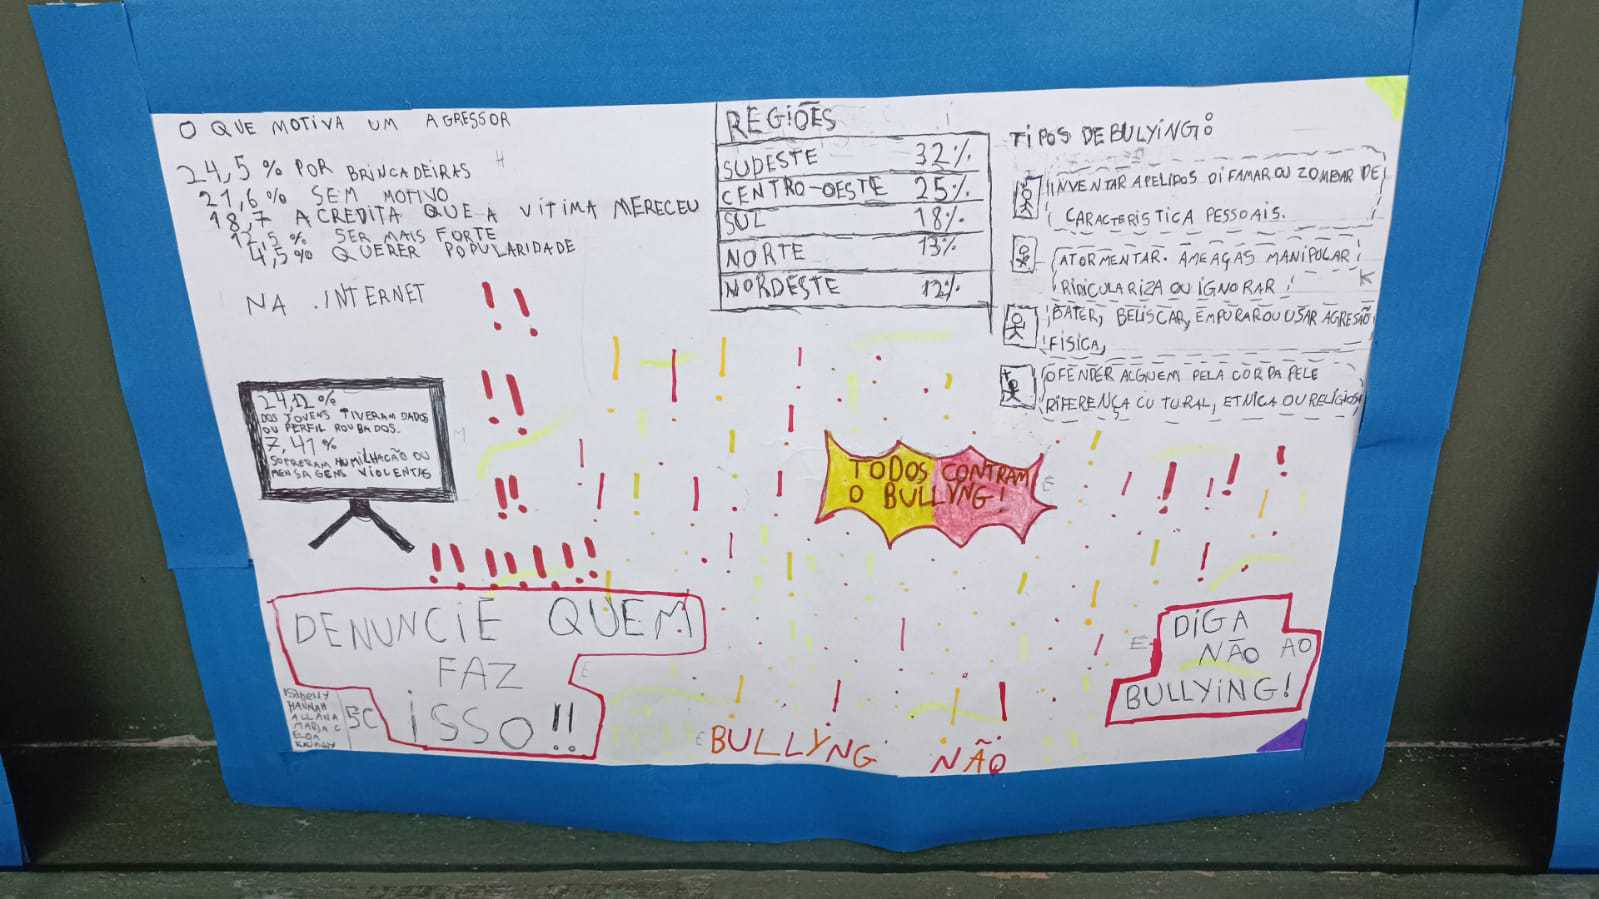 O QUE MOTIVA UM AGRESSOR
24,5 % POR BRINCADEIRAS
21,6% SEM MOTIVO
18,7 ACREDITA QUE A VÍTIMA MERECEU
12,5 % SER MAIS FORTE
4,5% QUERER POPULARIDADE
NA INTERNET
24,12 %
DOS JOVENS TIVERAM DADOS
OU PERFIL ROUBADOS.
7,41 %
SOFRERAM HUMILHAÇÃO OU
MENSAGENS VIOLENTAS
REGIÕES
SUDESTE 32%
CENTRO-OESTE 25%
SUL 18%
NORTE 13%
NORDESTE 12%
TIPOS DE BULYING:
INVENTAR APELIDOS DIFAMAR OU ZOMBAR DE
CARACTERISTICA PESSOAIS.
ATORMENTAR. AMEAÇAS MANIPULAR
RIDICULARIZA OU IGNORAR
BATER, BELISCAR, EMPURAR OU USAR AGRESÃO
FÍSICA,
OFENDER ALGUEM PELA COR DA PELE
DIFERENÇA CUTURAL, ETNICA OU RELIGIOSA
TODOS CONTRAM
O BULLYNG!
DENUNCIE QUEM
FAZ
ISSO!!
HANNAH
ALLANA
MARIA C
ELOA
5C
BULLYNG NÃO
DIGA
NÃO AO
BULLYING!